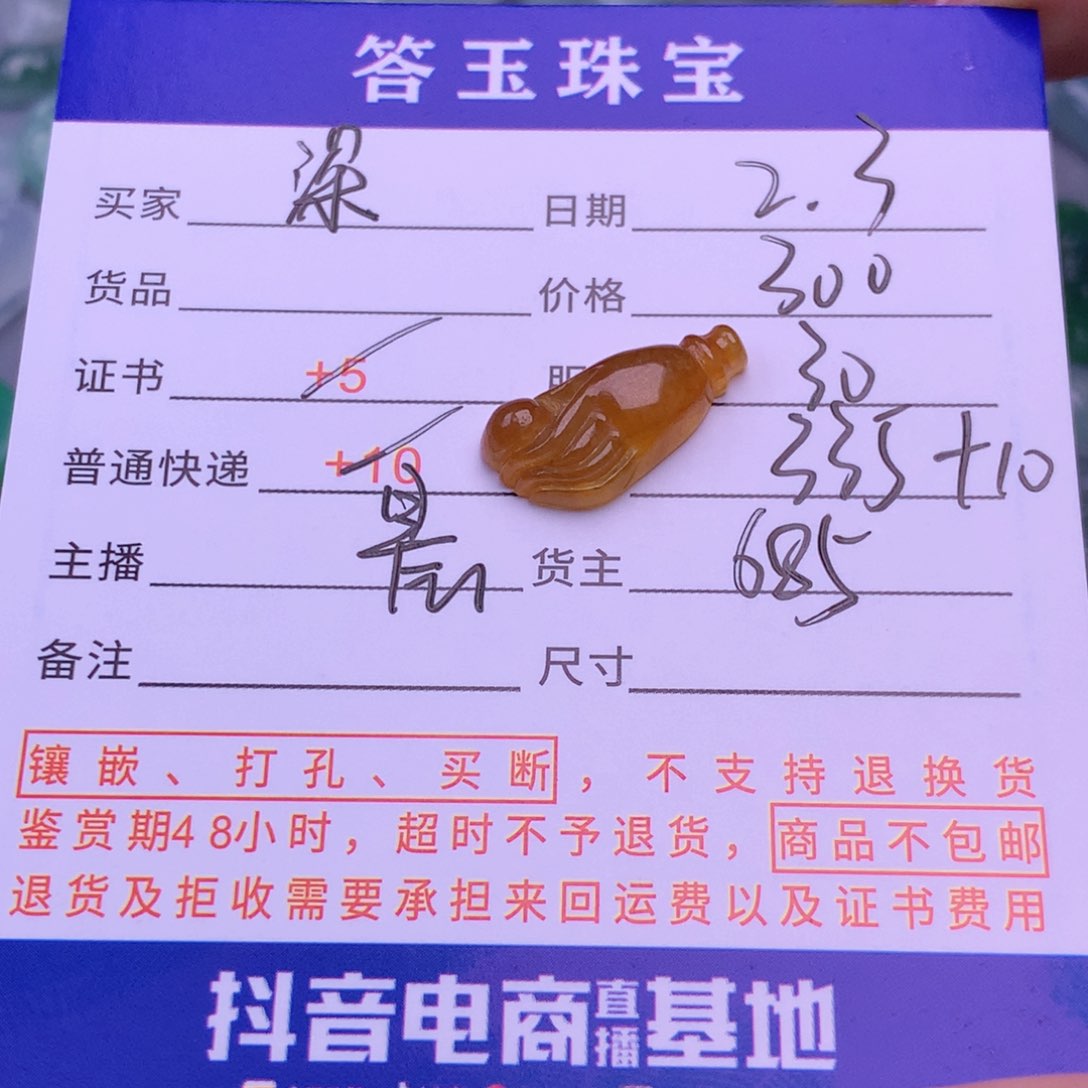 答玉珠宝
买家 深 日期 2.3
货品 价格 300
证书 +5 30
普通快递 +10 335+10
主播 货主 685
备注 尺寸
镶嵌、打孔、买断，不支持退换货
鉴赏期48小时，超时不予退货，商品不包邮
退货及拒收需要承担来回运费以及证书费用
抖音电商直播基地